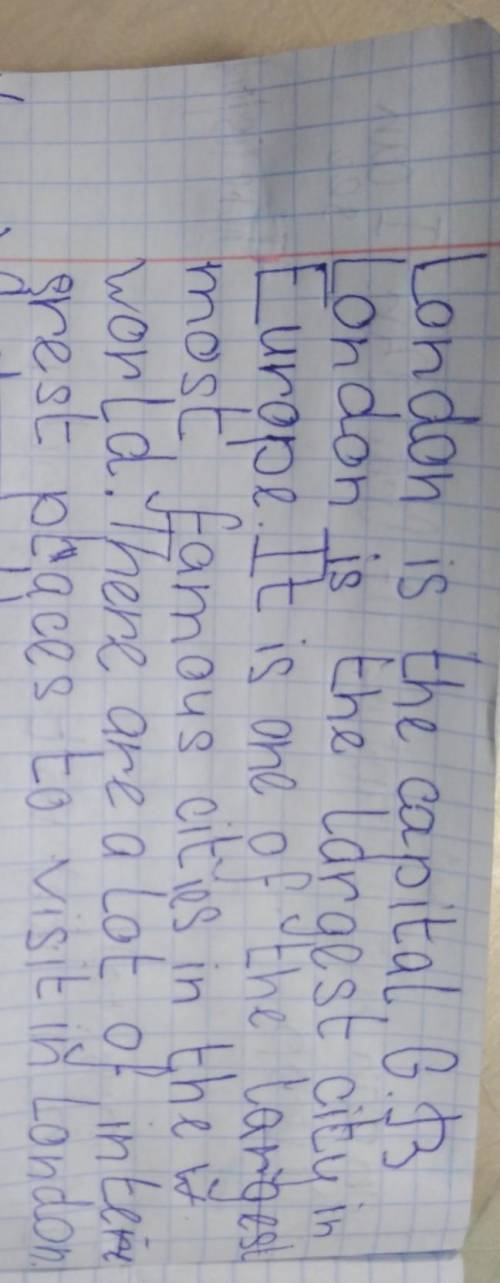 London is the capital G.B
London is the largest city in
Europe. It is one of the largest
most famous cities in the
world. There are a lot of inte
grest places to visit in London.